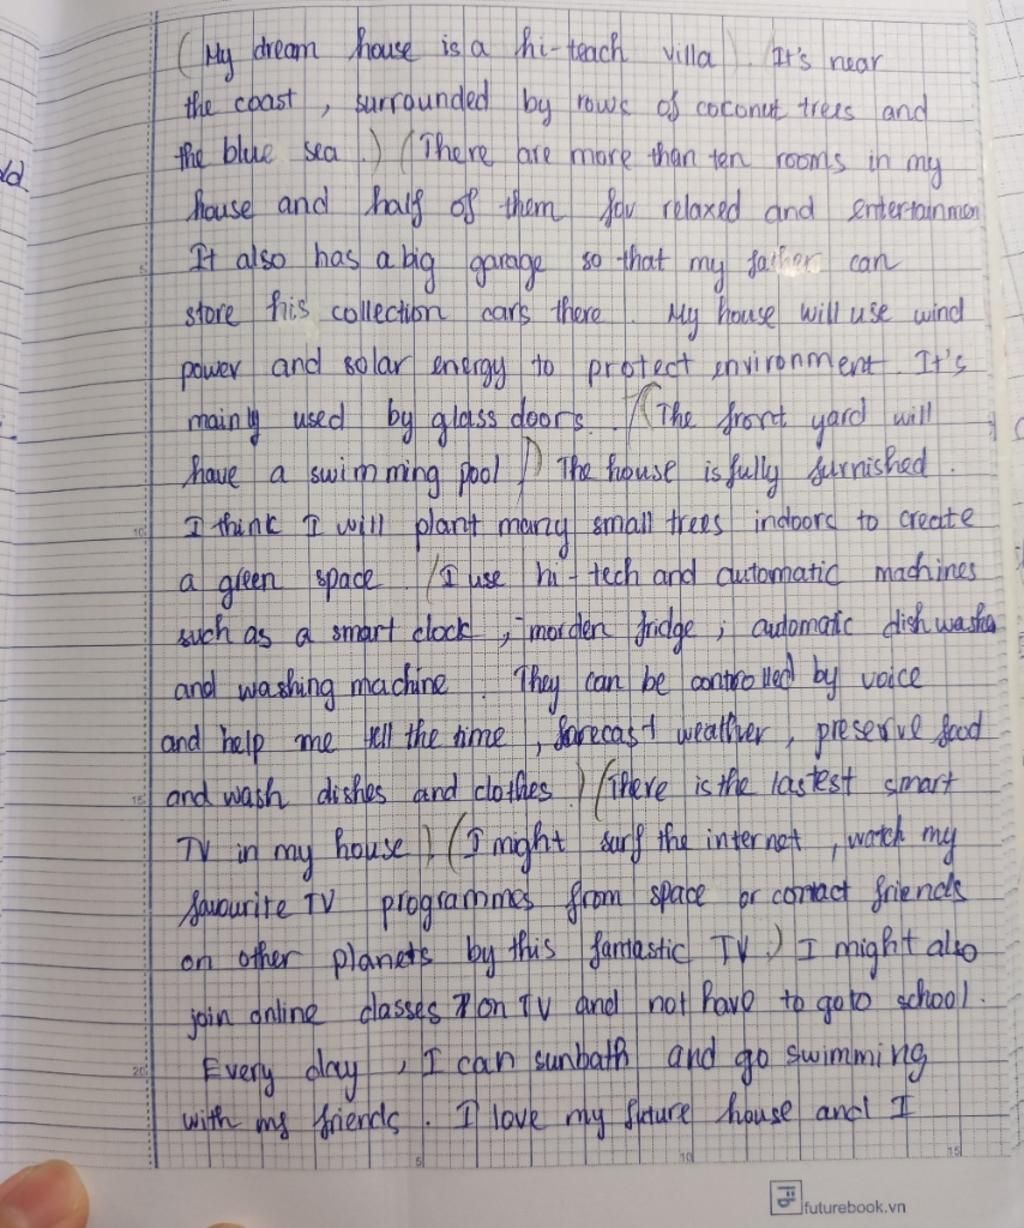 (My dream house is a hi-teach villa). It's near
the coast, surrounded by rows of coconut trees and
the blue sea.) (There are more than ten rooms in my
house and half of them for relaxed and entertainmen
It also has a big garage so that my father can
store his collection cars there. My house will use wind
power and solar energy to protect environment. It's
mainly used by glass doors. (The front yard will
have a swimming pool) The house is fully furnished.
I think I will plant many small trees indoors to create
a green space. (I use hi-tech and automatic machines
such as a smart clock, morden fridge, automatic dishwasher
and washing machine. They can be controlled by voice
and help me tell the time, forecast weather, preserve food
and wash dishes and clothes.) (There is the lastest smart
TV in my house) (I might surf the internet, watch my
favourite TV programmes from space or contact friends
on other planets by this fantastic TV.) I might also
join online classes on TV and not have to go to school.
Every day, I can sunbath and go swimming
with my friends. I love my future house and I
5
10
15
20
5
10
15
futurebook.vn